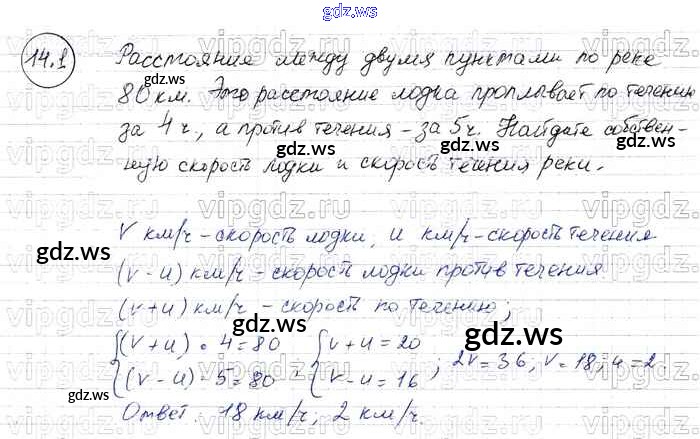 gdz.ws
14.1
Расстояние между двумя пунктами по реке
80 км. Это расстояние лодка проплывает по течению
за 4 ч., а против течения - за 5 ч. Найдите собствен-
ную скорость лодки и скорость течения реки.
V км/ч - скорость лодки, u км/ч - скорость течения
(v - u) км/ч - скорость лодки против течения
(v + u) км/ч - скорость по течению;
{(v + u) · 4 = 80 {v + u = 20
{(v - u) · 5 = 80 {v - u = 16 ; 2v = 36; v = 18; u = 2.
Ответ: 18 км/ч; 2 км/ч.
vipgdz.ru
gdz.ws